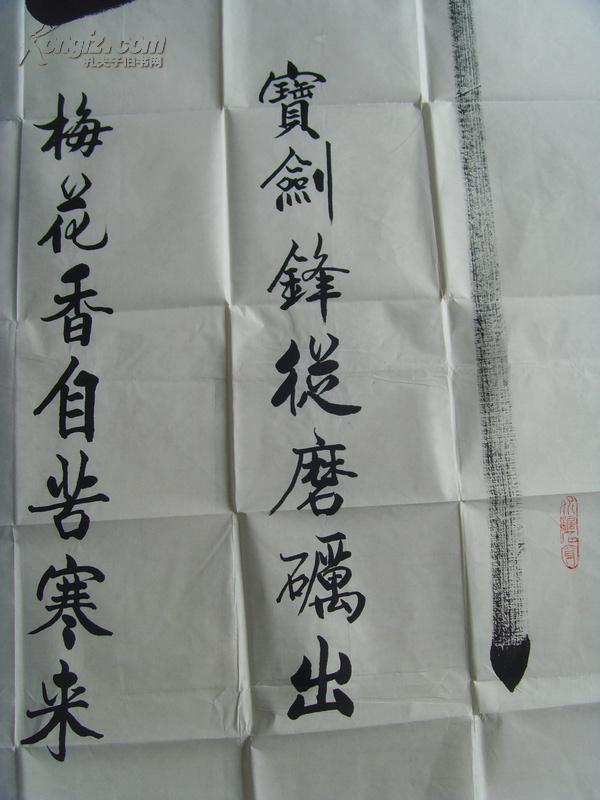 寶劍鋒從磨礪出
梅花香自苦寒来
Kongfz.com
孔夫子旧书网